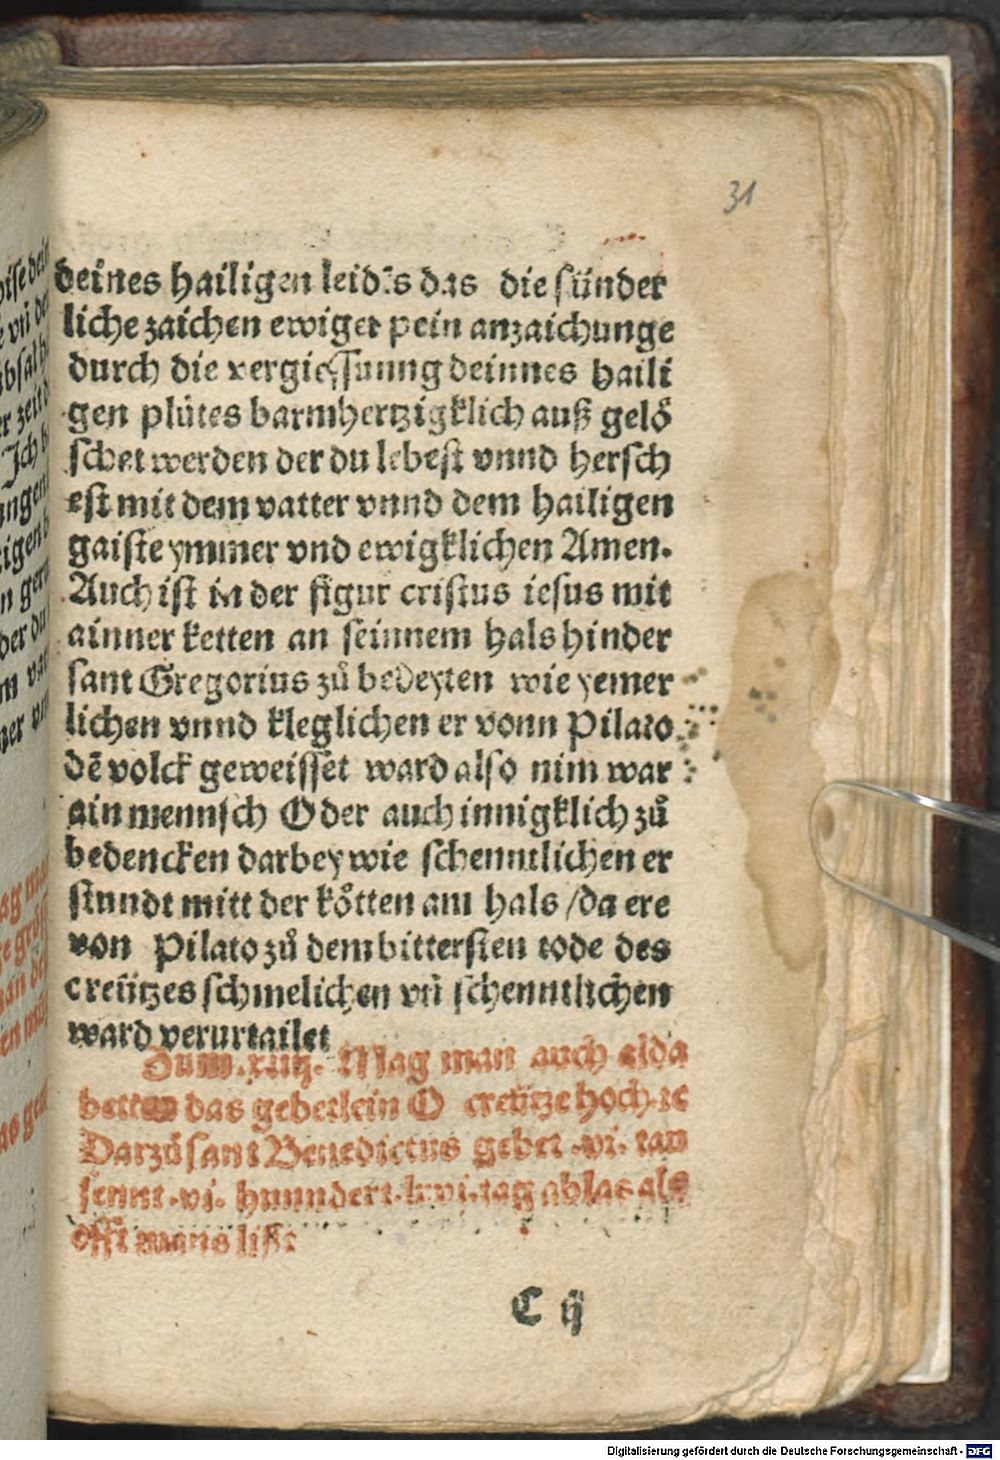 31
deines hailigen leides das die sünder
liche zaichen ewiger pein anzaichunge
durch die vergiessunng deinnes haili
gen plůtes barmhertzigklich auß gelö
schet werden der du lebest vnnd hersch
est mit dem vatter vnnd dem hailigen
gaiste ymmer vnd ewigklichen Amen.
Auch ist in der figur cristus iesus mit
ainner ketten an seinnem hals hinder
sant Gregorius zů bedeyten wie yemer
lichen vnnd kleglichen er vonn Pilato
dē volck geweisset ward also nim war
ain mennsch Oder auch innigklich zů
bedencken darbey wie schenntlichen er
stundt mitt der kötten am hals / da ere
von Pilato zů dem bittersten tode des
creützes schmelichen vñ schenntlichen
ward verurtailet
Zum .xiiij. Mag man auch alda
betten das gebetlein O creütze hoch ꝛc
Darzů sant Benedictus gebet .vi. tau
sennt .vi. hunndert .lxvi. tag ablas als
offt mans list
C ij
Digitalisierung gefördert durch die Deutsche Forschungsgemeinschaft - DFG